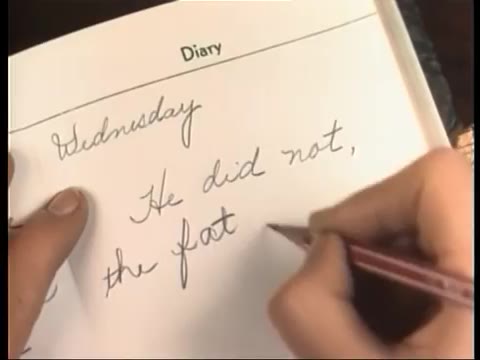 Diary
Wednesday
He did not,
the fat